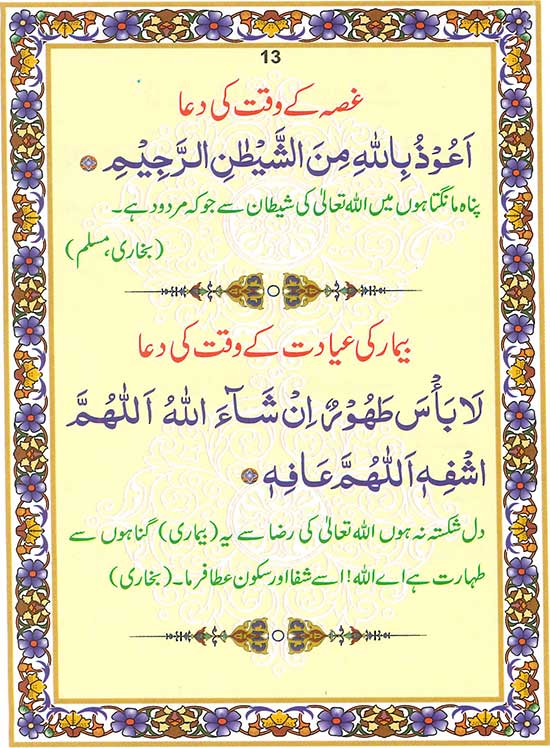 13
غصہ کے وقت کی دعا
اَعُوْذُ بِاللّٰهِ مِنَ الشَّيْطٰنِ الرَّجِيْمِ
پناہ مانگتا ہوں میں اللہ تعالیٰ کی شیطان سے جو کہ مردود ہے۔
(بخاری، مسلم)
بیمار کی عیادت کے وقت کی دعا
لَا بَأْسَ طَهُوْرٌ اِنْ شَآءَ اللهُ اَللّٰهُمَّ
اشْفِهٖ اَللّٰهُمَّ عَافِهٖ
دل شکستہ نہ ہوں اللہ تعالیٰ کی رضا سے یہ (بیماری) گناہوں سے
طہارت ہے اے اللہ! اسے شفا اور سکون عطا فرما۔ (بخاری)